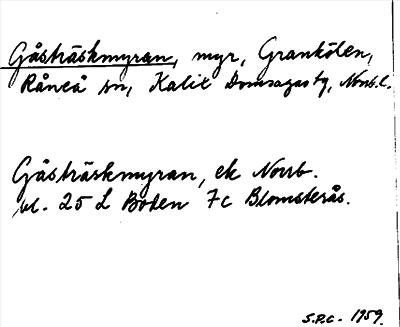 Gåsträskmyran, myr, Grankölen,
Råneå sn, Kalix Domsagas tg, Norrb.l.
Gåsträskmyran, ek Norrb.
bl. 25 L Boden 7c Blomsterås.
S.P.C. - 1959.